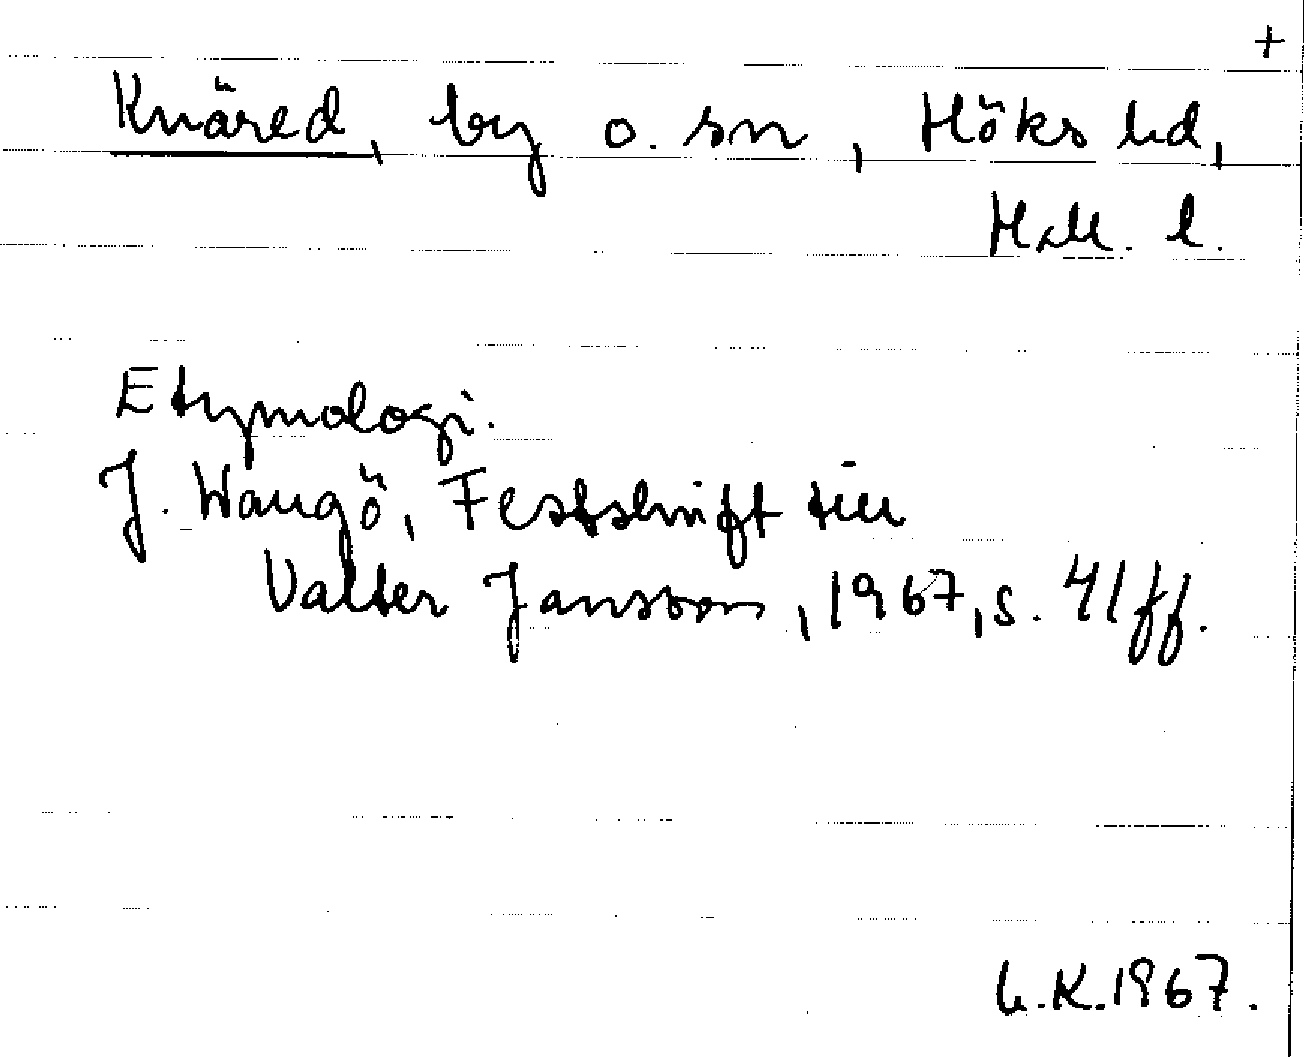 +
Knäred, by o. sn, Höks hd,
Hall. l.
Etymologi.
J. Wangö, Festskrift till
Valter Jansson, 1967, s. 41 ff.
K. 1967.